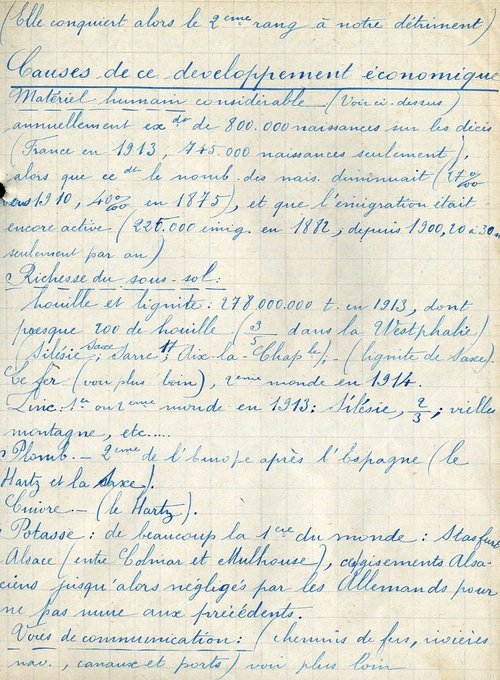 (Elle conquiert alors le 2eme rang à notre détriment)
Causes de ce developpement économique
Matériel humain considérable (Voir ci-dessus)
annuellement exdt de 800.000 naissances sur les décès
(France en 1913, 745.000 naissances seulement),
alors que cedt le nomb. des nais. diminuait (27 %
en 1910, 40 ‰ en 1875), et que l'émigration était
encore active (220.000 émig. en 1882, depuis 1900, 20 à 30
seulement par an)
Richesse du sous-sol:
houille et lignite: 278.000.000 t. en 1913, dont
presque 200 de houille (3/5 dans la Westphalie)
(Silésie, Saxe, Sarre, Aix-la-Chaple). - (lignite de Saxe).
Le fer (voir plus loin), 2eme monde en 1914.
Zinc. 1er ou 2eme monde en 1913: Silésie, 2/3; vieille
montagne, etc.....
Plomb. - 2eme de l'Europe après l'Espagne (le
Hartz et la Saxe).
Cuivre - (le Hartz).
Potasse: de beaucoup la 1ere du monde: Stasfurt
Alsace (entre Colmar et Mulhouse), gisements Alsa-
ciens jusqu'alors négligés par les Allemands pour
ne pas nuire aux précédents.
Voies de communication: (chemins de fers, rivières
nav., canaux et ports) voir plus loin